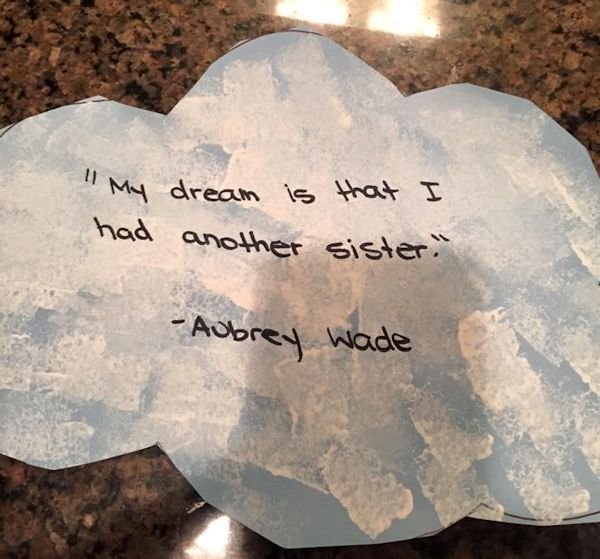 "My dream is that I
had another sister."
-Aubrey Wade